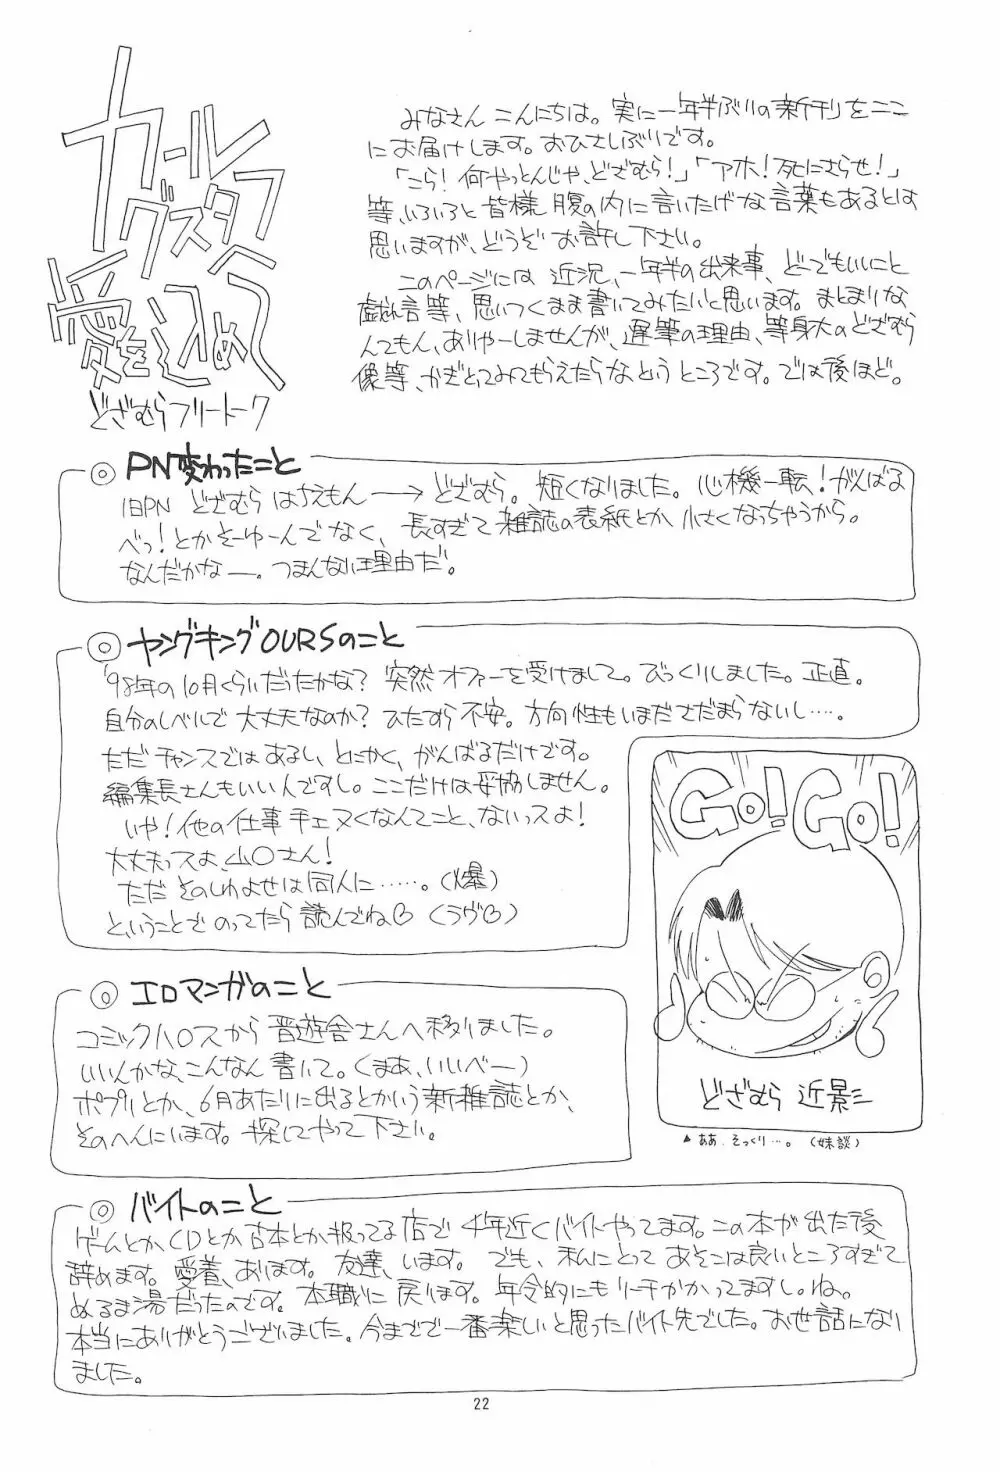 カールグスタフ
愛を込めて
どざむらフリートーク
みなさんこんにちは。実に一年半ぶりの新刊をここ
にお届けします。おひさしぶりです。
「こら！何やっとんじゃ、どざむら！」「アホ！死にさらせ！」
等、いろいろと皆様腹の内に言いたげな言葉もあるとは
思いますが、どうぞお許し下さい。
このページには近況、一年半の出来事、どーでもいいこと
戯れ言等、思いつくまま書いてみたいと思います。まとまりな
んてもん、ありゃーしませんが、遅筆の理由、等身大のどざむら
像等、かぎとってみてもらえたらなというところです。では後ほど。
◎ PN変わったこと
旧PN どざむらはちえもん ─→ どざむら。短くなりました。心機一転！がんばる
べっ！とかそーゆーんでなく、長すぎて雑誌の表紙とか小さくなっちゃうから。
なんだかなー。つまんない理由だ。
◎ ヤングキングOURSのこと
'98年の10月くらいだったかな？突然オファーを受けまして。びっくりしました。正直。
自分のレベルで大丈夫なのか？ひたすら不安。方向性もいまださだまらないし‥‥。
ただチャンスではあるし、とにかく、がんばるだけです。
編集長さんもいい人ですし。ここだけは妥協しません。
いや！他の仕事手ェヌくなんてこと、ないっスよ！
大丈夫っスよ、山○さん！
ただそのしわよせは同人に‥‥‥。（爆）
ということでのってたら読んでね♡（ラヴ♡）
GO! GO!
どざむら 近影
▲ああ、そっくり…。（妹談）
◎ エロマンガのこと
コミックハ○スから晋遊舎さんへ移りました。
いいんかな、こんなん書いて。（まあ、いいべー）
ポプリとか、6月あたりに出るとかいう新雑誌とか、
そのへんにいます。探してやって下さい。
◎ バイトのこと
ゲームとかCDとか古本とか扱ってる店で4年近くバイトやってます。この本が出た後
辞めます。愛着、あります。友達、います。でも、私にとってあそこは良いところすぎて
ぬるま湯だったのです。本職に戻ります。年令的にもリーチかかってますし。ね。
本当にありがとうございました。今までで一番楽しいと思ったバイト先でした。お世話になり
ました。
22